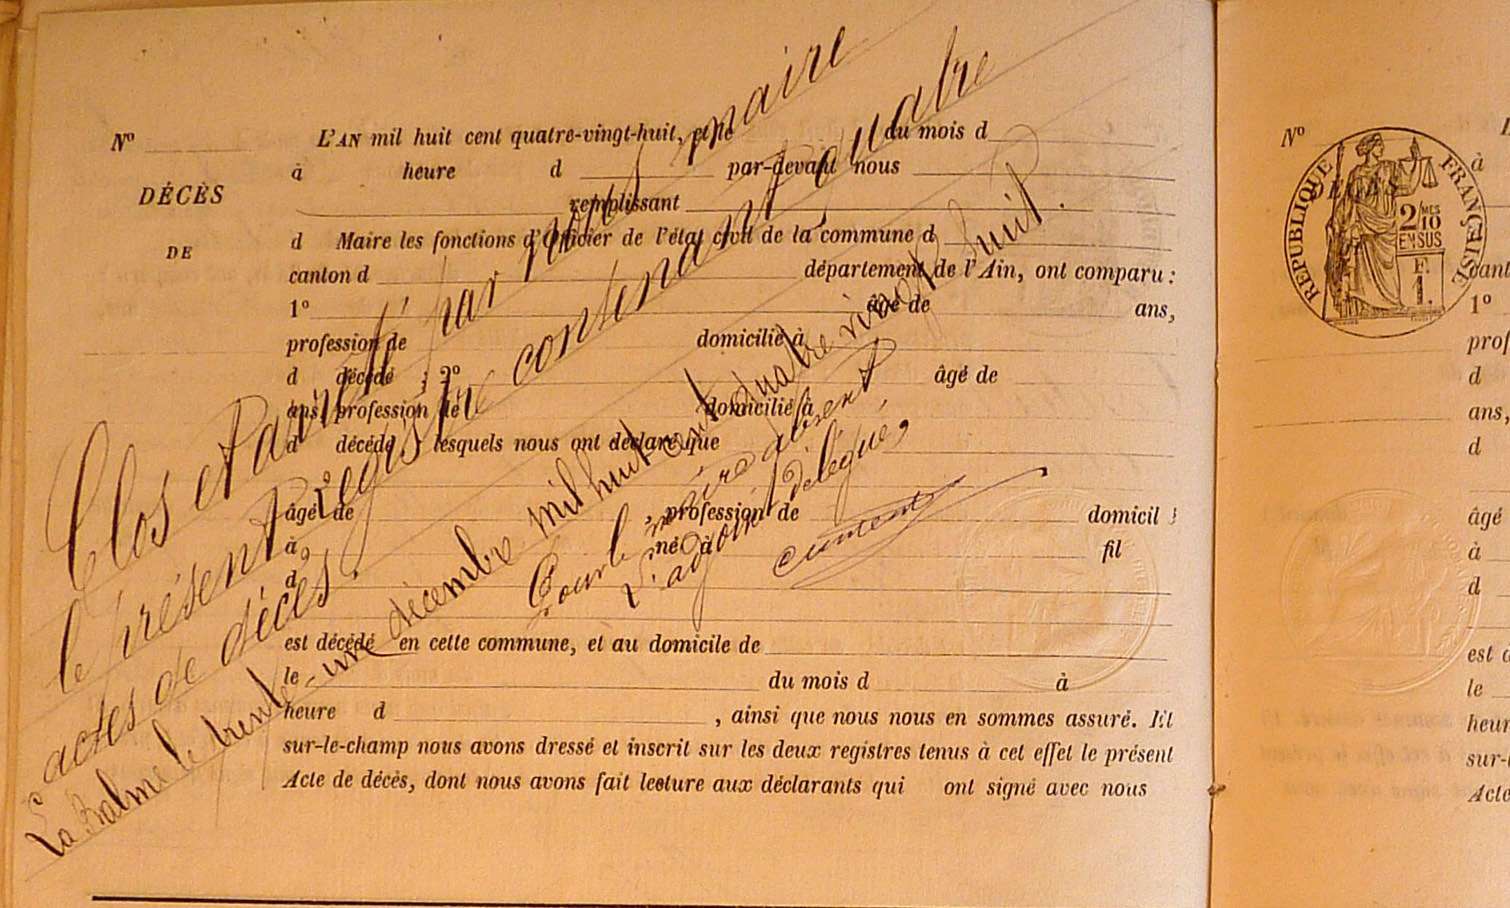 Nº
DÉCÈS
DE
L'AN mil huit cent quatre-vingt-huit, et le du mois d
à heure d par-devant nous
remplissant
d Maire les fonctions d'Officier de l'état civil de la commune d
canton d département de l'Ain, ont comparu :
1º âgé de ans,
profession de domicilié à
d décédé ; 2º âgé de
ans, profession de domicilié à
d décédé ; lesquels nous ont déclaré que
âgé de , profession de domicil
à , né à fil
d
est décédé en cette commune, et au domicile de
le du mois d à
heure d , ainsi que nous nous en sommes assuré. Et
sur-le-champ nous avons dressé et inscrit sur les deux registres tenus à cet effet le présent
Acte de décès, dont nous avons fait lecture aux déclarants qui ont signé avec nous
Clos et arrêté par nous maire
le présent Registre contenant quatre
actes de décès.
La Balme le trente-un décembre mil huit cent quatre vingt huit.
Pour le maire absent
L'adjoint délégué,
Nº
RÉPUBLIQUE FRANÇAISE
2/10 MES
EN SUS
F.
1.
à
cant
1º
prof
d
ans,
d
âgé
à
d
est d
le
heur
sur-l
Acte